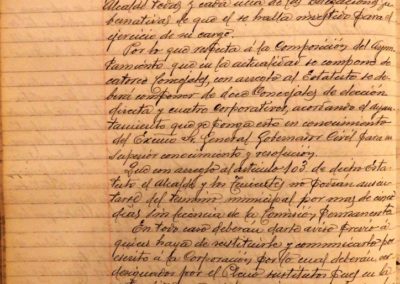 Alcalde todas y cada una de las
bernativas de que el se halla investido para el
ejercicio de su cargo.
Por lo que respecta á la Composición del Ayun-
tamiento que en la actualidad se compone de
catorce Concejales, con arreglo al Estatuto se de-
berá componer de doce Concejales de elección
directa y cuatro Corporativos, acordando el ayun-
tamiento que se ponga esto en conocimiento
del Excmo Sr. General Gobernador Civil para su
superior conocimiento y resolución.
Que con arreglo al artículo 103 de dicho Esta-
tuto el Alcalde y los Tenientes no podrán ausen-
tarse del termino municipal por mas de
dias sin licencia de la Comisión permanente
En todo caso deberan darle aviso previo á
quien haya de sustituirle y comunicarlo por
escrito a la Corporación por lo cual deberán ser
designados por el Pleno sustitutos pues en la